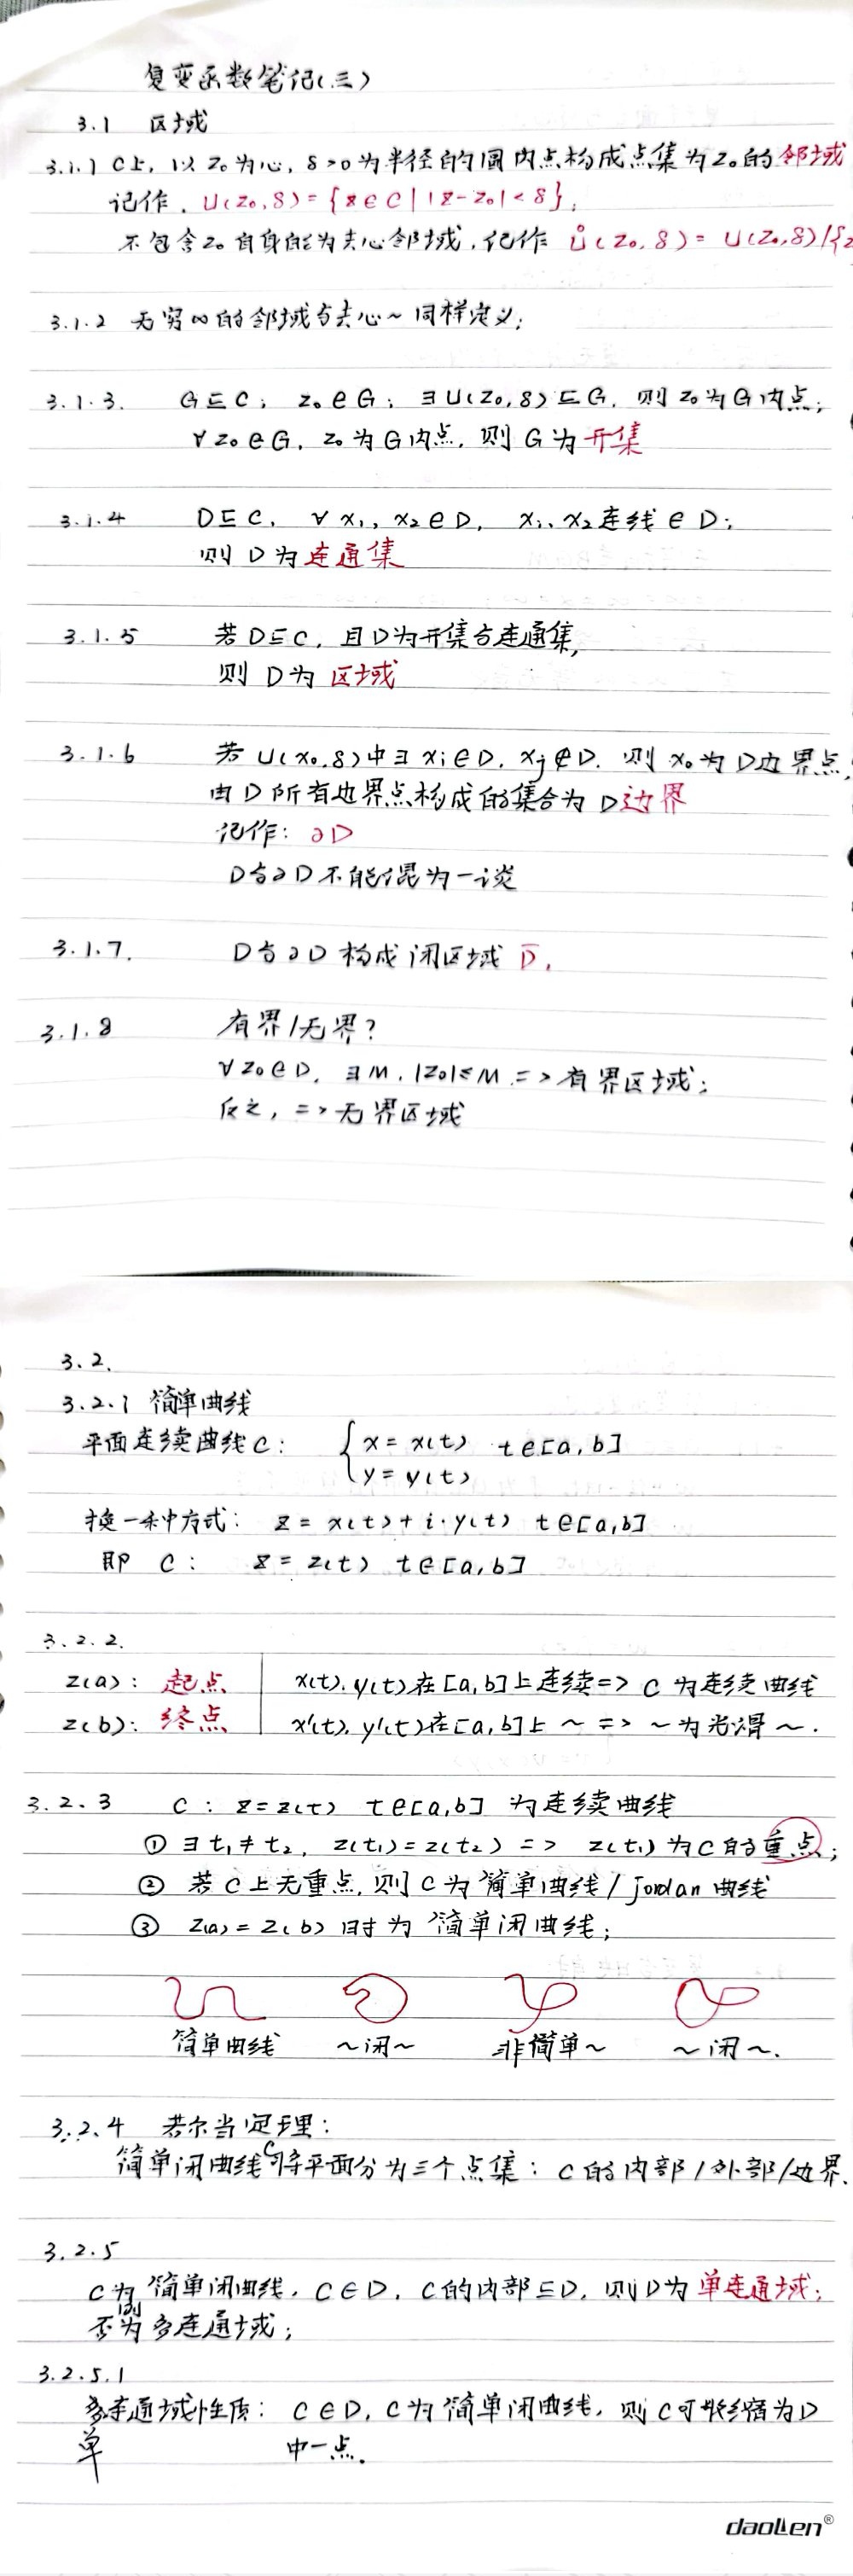 复变函数笔记(三)
3.1 区域
3.1.1 C上, 以 z₀为心, δ>0为半径的圆内点构成点集为z₀的邻域
记作. U(z₀,δ)={z∈C||z-z₀|<δ};
不包含z₀自身的为去心邻域,记作 Ů(z₀,δ)= U(z₀,δ)/{z
3.1.2 无穷∞的邻域与去心~同样定义;
3.1.3. G⊆C; z₀∈G; ∃U(z₀,δ)⊆G, 则z₀为G内点;
∀z₀∈G, z₀为G内点, 则G为开集
3.1.4 D⊆C, ∀x₁, x₂∈D, x₁、x₂连线∈D;
则D为连通集
3.1.5 若D⊆C, 且D为开集与连通集,
则 D为 区域
3.1.6 若U(x₀,δ)中∃xᵢ∈D, xⱼ∉D. 则x₀为D边界点,
由D所有边界点构成的集合为D边界
记作: ∂D
D与∂D不能混为一谈
3.1.7. D与∂D构成闭区域 D̄.
3.1.8 有界/无界?
∀z₀∈D, ∃M, |z₀|≤M => 有界区域;
反之, => 无界区域
3.2.
3.2.1 简单曲线
平面连续曲线C: { x = x(t) t∈[a,b]
y = y(t)
换一种方式: z = x(t)+i·y(t) t∈[a,b]
即 C: z = z(t) t∈[a,b]
3.2.2.
z(a): 起点 x(t), y(t)在[a,b]上连续=> C为连续曲线
z(b): 终点 x'(t), y'(t)在[a,b]上~ => ~为光滑~.
3.2.3 C: z=z(t) t∈[a,b] 为连续曲线
① ∃t₁≠t₂, z(t₁)=z(t₂) => z(t₁)为C的重点;
② 若C上无重点,则C为简单曲线/Jordan曲线
③ z(a)=z(b)时为简单闭曲线;
简单曲线 ~闭~ 非简单~ ~闭~.
3.2.4 若尔当定理:
简单闭曲线C将平面分为三个点集: C的内部/外部/边界.
3.2.5
C为简单闭曲线, C∈D, C的内部⊆D, 则D为单连通域;
否则为多连通域;
3.2.5.1
单连通域性质: C∈D, C为简单闭曲线, 则C可收缩为D
中一点.
daoLen®